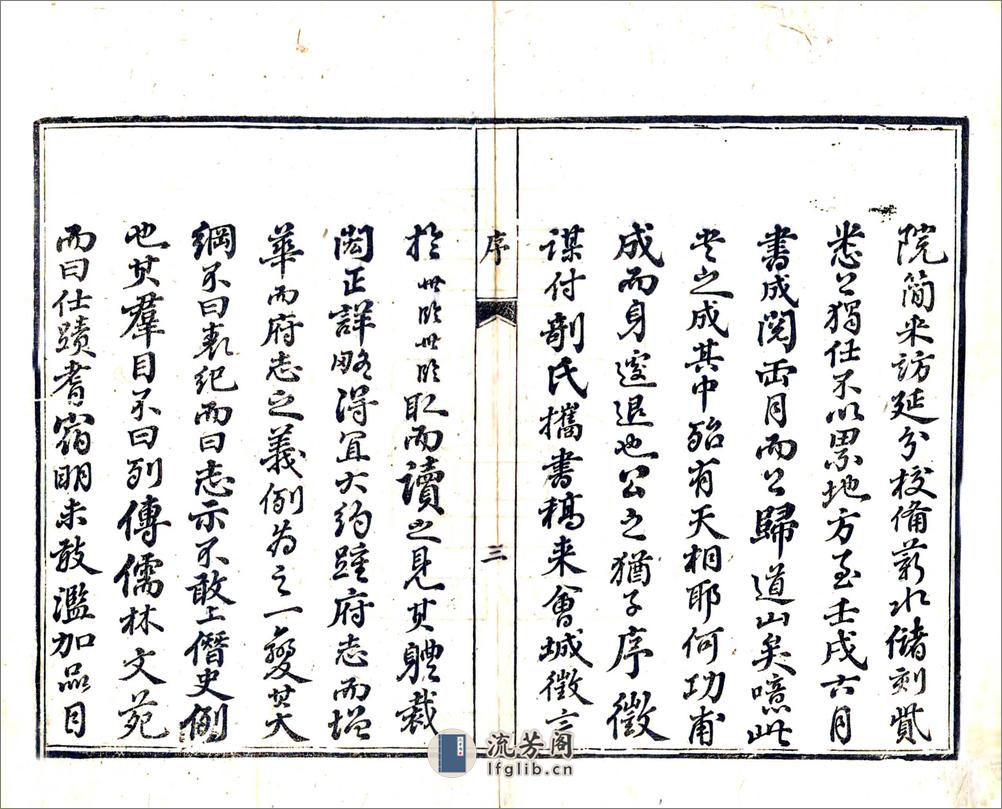 院簡來訪延分校備薪水儲刻貲
悉公獨任不以累地方至壬戌六月
書成閱面月而公歸道山矣噫此
老之成其中殆有天相耶何功甫
成而身遽退也公之猶子序徵
謀付剞氏攜書稿来會城徵言
於世昣世昣取而讀之見其體裁
閎正詳略得宜大約踵府志而增
華而府志之義例為之一變其大
綱不曰表紀而曰志示不敢上僭史例
也其羣目不曰列傳儒林文苑
而曰仕蹟耆宿明未敢濫加品目
序
三
流芳阁
lfglib.cn